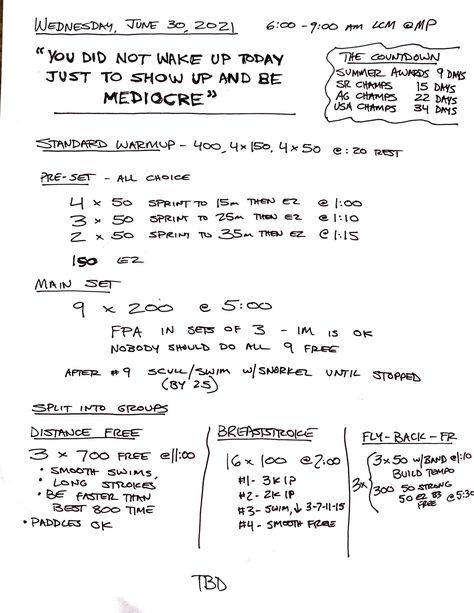 WEDNESDAY, JUNE 30, 2021 6:00 - 9:00 AM LCM @MP
"YOU DID NOT WAKE UP TODAY
JUST TO SHOW UP AND BE
MEDIOCRE"
THE COUNTDOWN
SUMMER AWARDS 9 DAYS
SR CHAMPS 15 DAYS
AG CHAMPS 22 DAYS
USA CHAMPS 34 DAYS
STANDARD WARMUP - 400, 4x150, 4x50 @:20 REST
PRE-SET - ALL CHOICE
4 x 50 SPRINT TO 15m THEN EZ @ 1:00
3 x 50 SPRINT TO 25m THEN EZ @ 1:10
2 x 50 SPRINT TO 35m THEN EZ @ 1:15
150 EZ
MAIN SET
9 x 200 @ 5:00
FPA IN SETS OF 3 - IM IS OK
NOBODY SHOULD DO ALL 9 FREE
AFTER #9 SCULL/SWIM W/SNORKEL UNTIL STOPPED
(BY 25)
SPLIT INTO GROUPS
DISTANCE FREE
3 x 700 FREE @11:00
• SMOOTH SWIMS
• LONG STROKES
• BE FASTER THAN
BEST 800 TIME
• PADDLES OK
BREASTSTROKE
16 x 100 @2:00
#1 - 3K 1P
#2 - 2K 1P
#3 - SWIM, ↓ 3-7-11-15
#4 - SMOOTH FREE
FLY-BACK-FR
3x
3x50 W/BAND @1:10
BUILD TEMPO
300 50 STRONG
50 EZ B3 @5:30
FREE
TBD